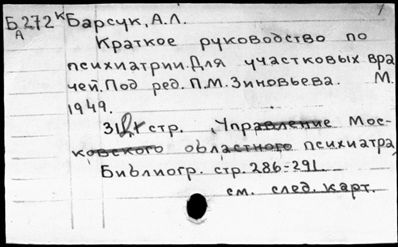 Б272к Барсук, А.Л.
А
Краткое руководство по
психиатрии. Для участковых вра
чей. Под ред. П.М. Зиновьева. М.
1949.
стр. Управление Мос-
ковского областного психиатра
Библиогр. стр. 286-291.
см. след. карт.